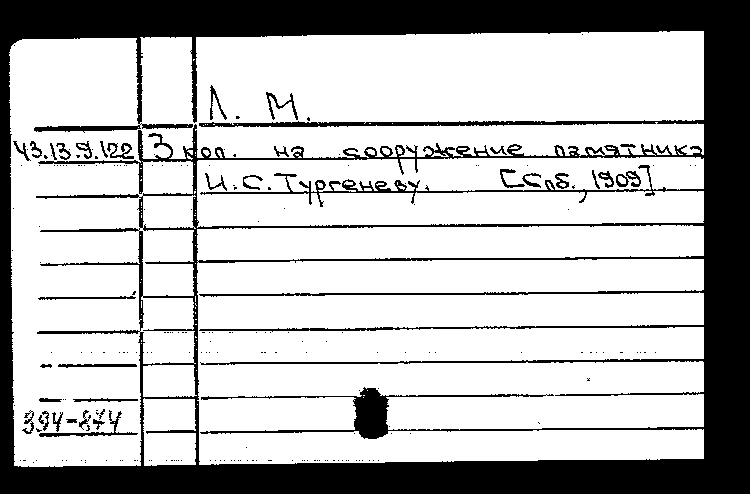 Л. М.
43.13.9.122 3 коп. на сооружение памятника
И. С. Тургеневу. [Спб., 1909].
394-874